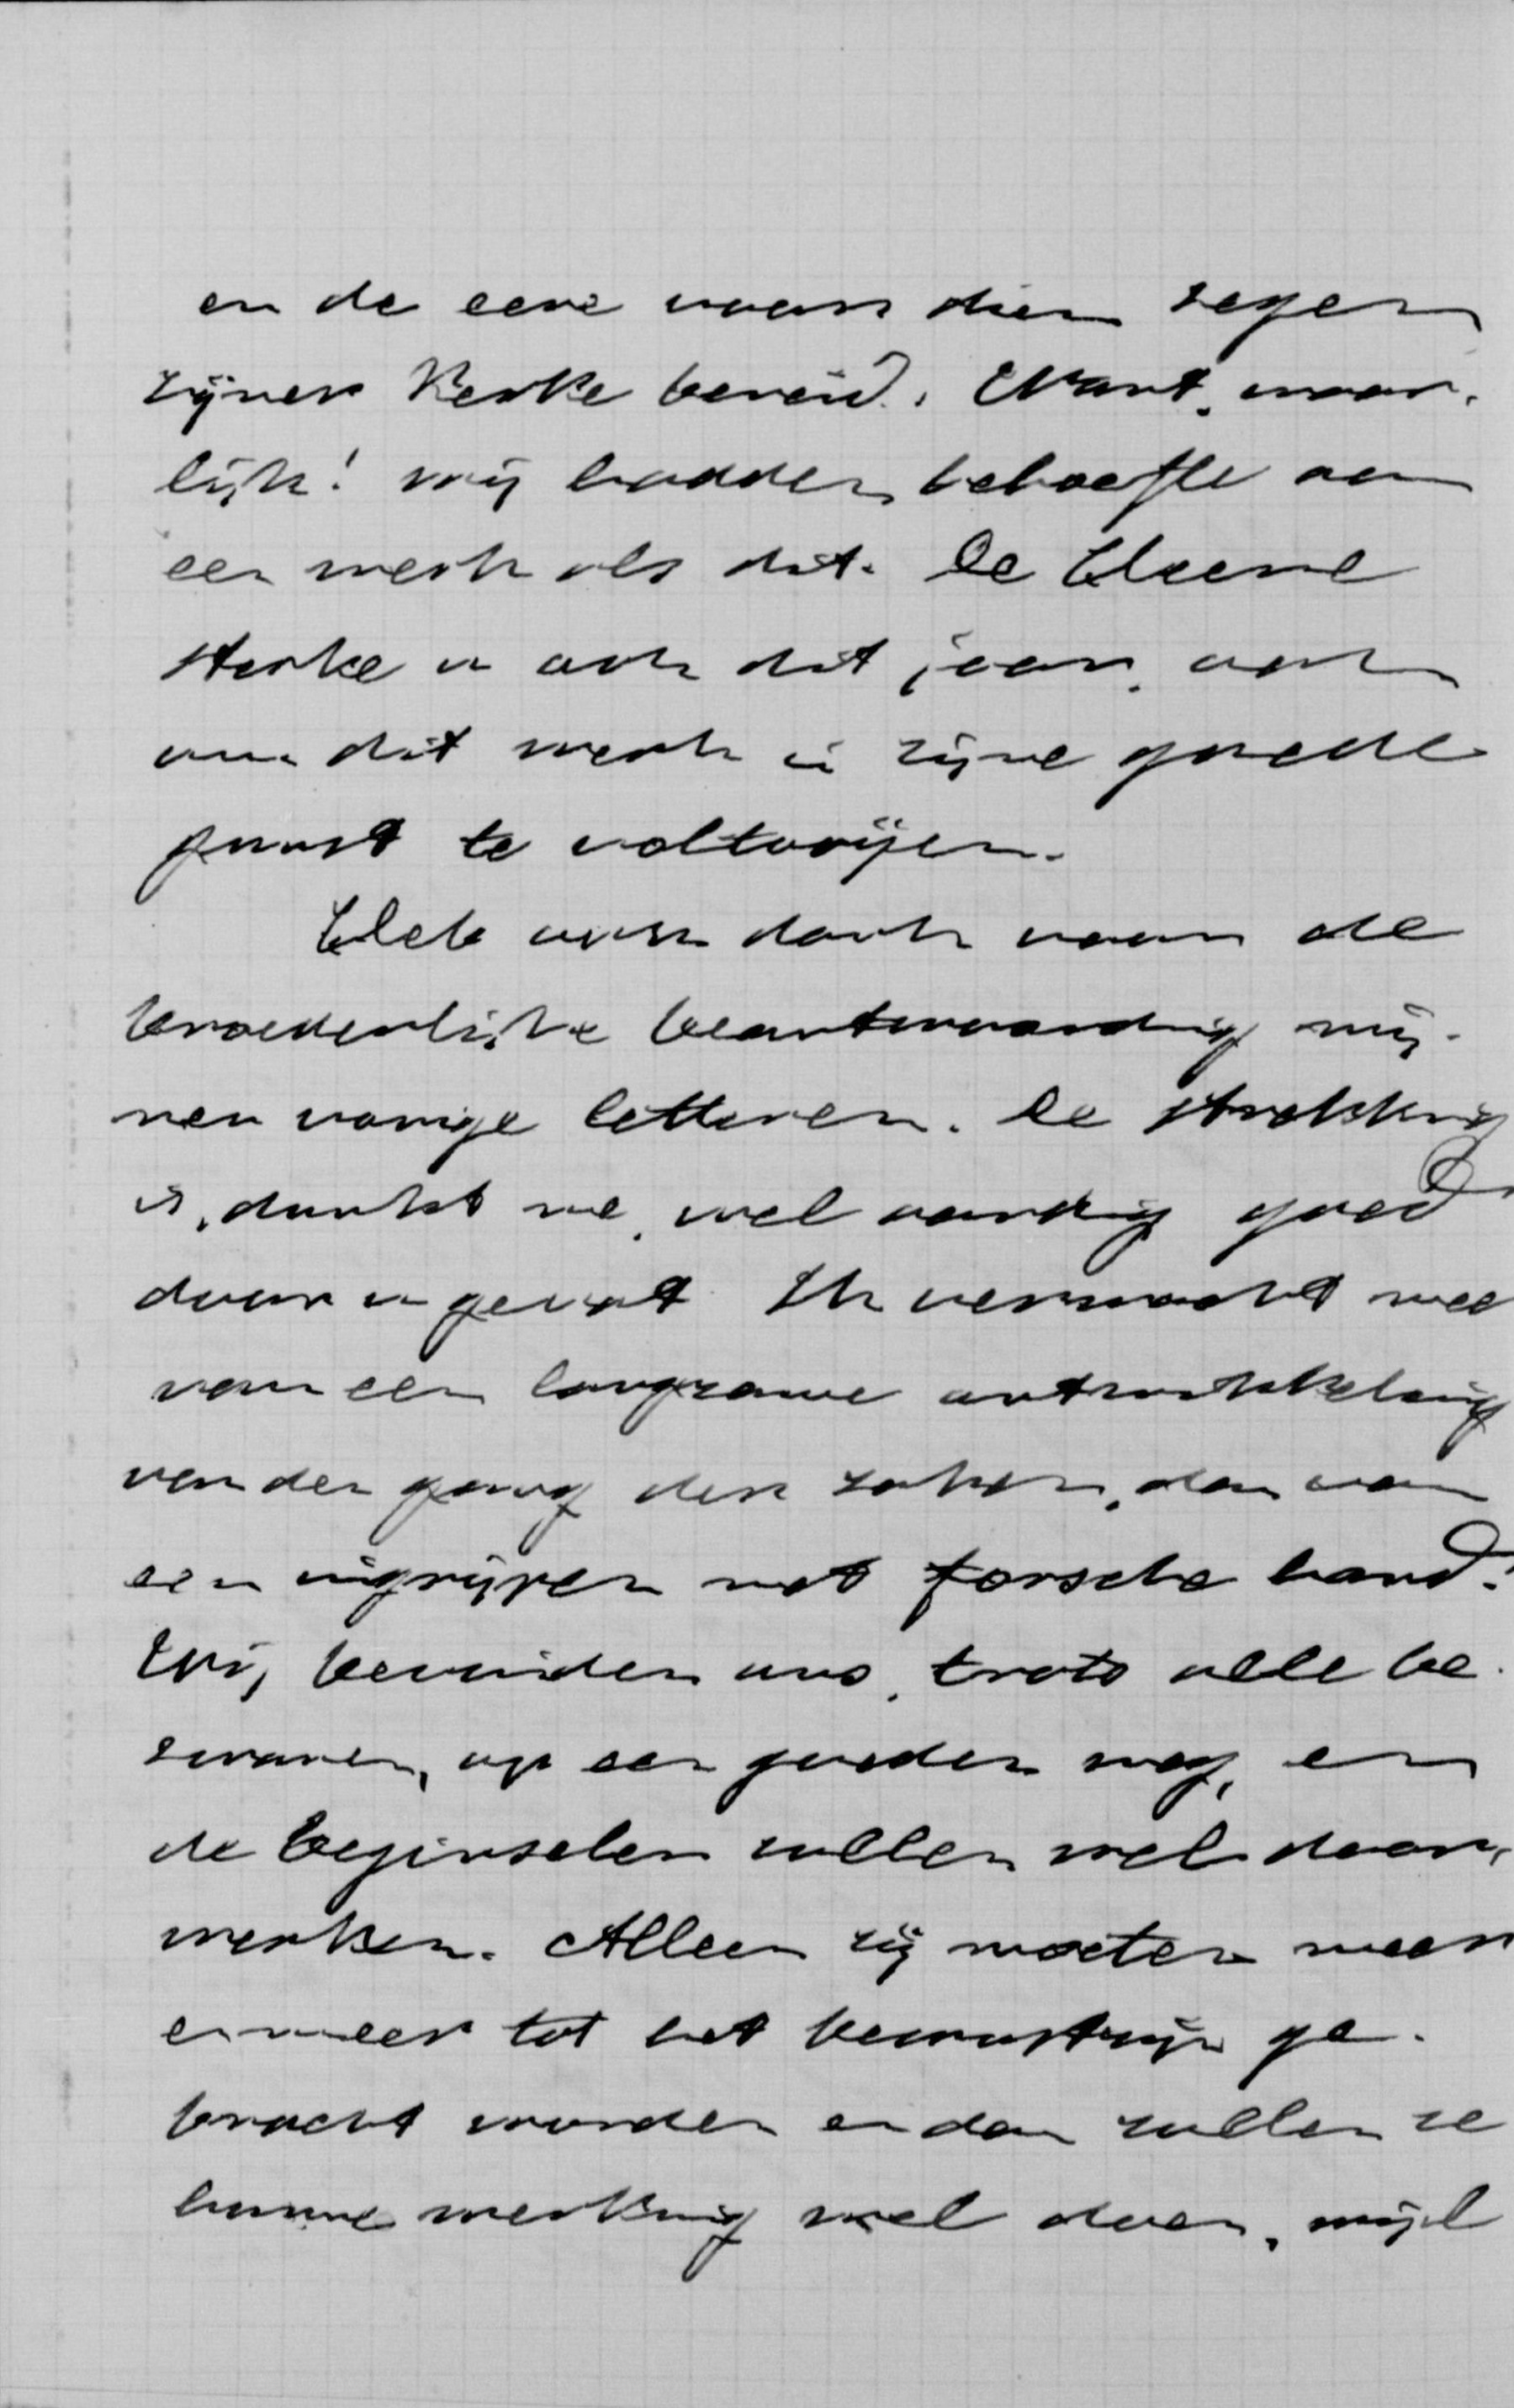 en de eere voor dien zegen
zijner Kerke bereid. Want, waar-
lijk! wij hadden behoefte aan
een werk als dit. De Heere
sterke u ook dit jaar, om
dit werk in zijne goede
gunst te voltooijen.
Heb ook dank voor de
broederlijke beantwoording mij-
ner vorige letteren. De strekking
is, dunkt me, wel aardig goed
door u gevat. Ik verwacht meer
van een langzame ontwikkeling
van den gang der zaken, dan van
een ingrijpen met forsche hand.
Wij bevinden ons, trots alle be-
zwaren, op een goeden weg, en
de beginselen zullen wel door-
werken. Alleen zij moeten meer
en meer tot het bewustzijn ge-
bracht worden en dan zullen ze
hunne werking wel doen, wijl